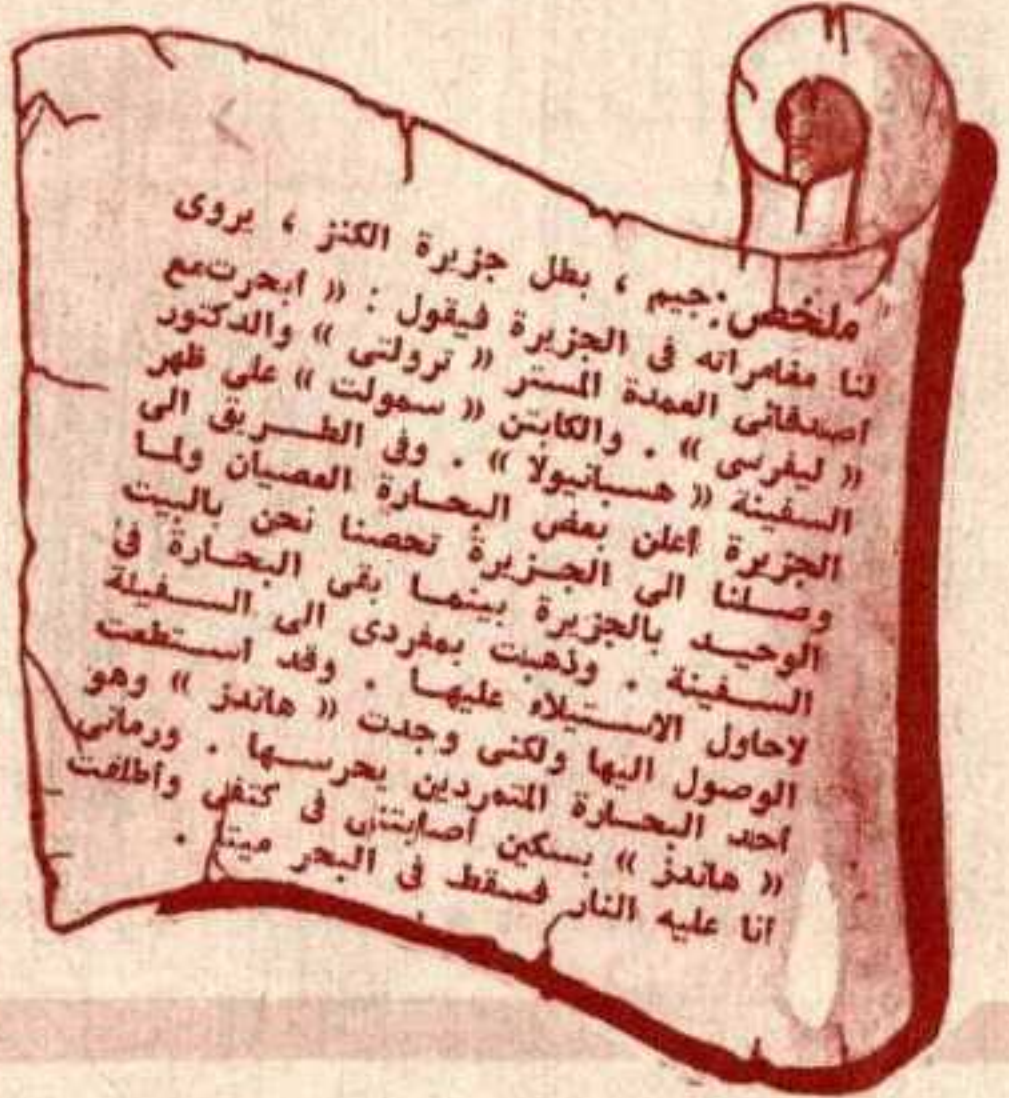 ملخص : جيم ، بطل جزيرة الكنز ، يروى
لنا مغامراته فى الجزيرة فيقول : « ابحرت مع
اصدقائى العمدة المستر « ترولتى » والدكتور
« ليفرسى » . والكابتن « سمولت » على ظهر
السفينة « هسبانيولا » . وفى الطريق الى
الجزيرة أعلن بعض البحارة العصيان ولما
وصلنا الى الجزيرة تحصنا نحن بالبيت
الوحيد بالجزيرة بينما بقى البحارة فى
السفينة . وذهبت بمفردى الى السفينة
لاحاول الاستيلاء عليها . وقد استطعت
الوصول اليها ولكنى وجدت « هاندز » وهو
أحد البحارة المتمردين يحرسها . ورمانى
« هاندز » بسكين أصابتنى فى كتفى وأطلقت
انا عليه النار فسقط فى البحر ميتا .